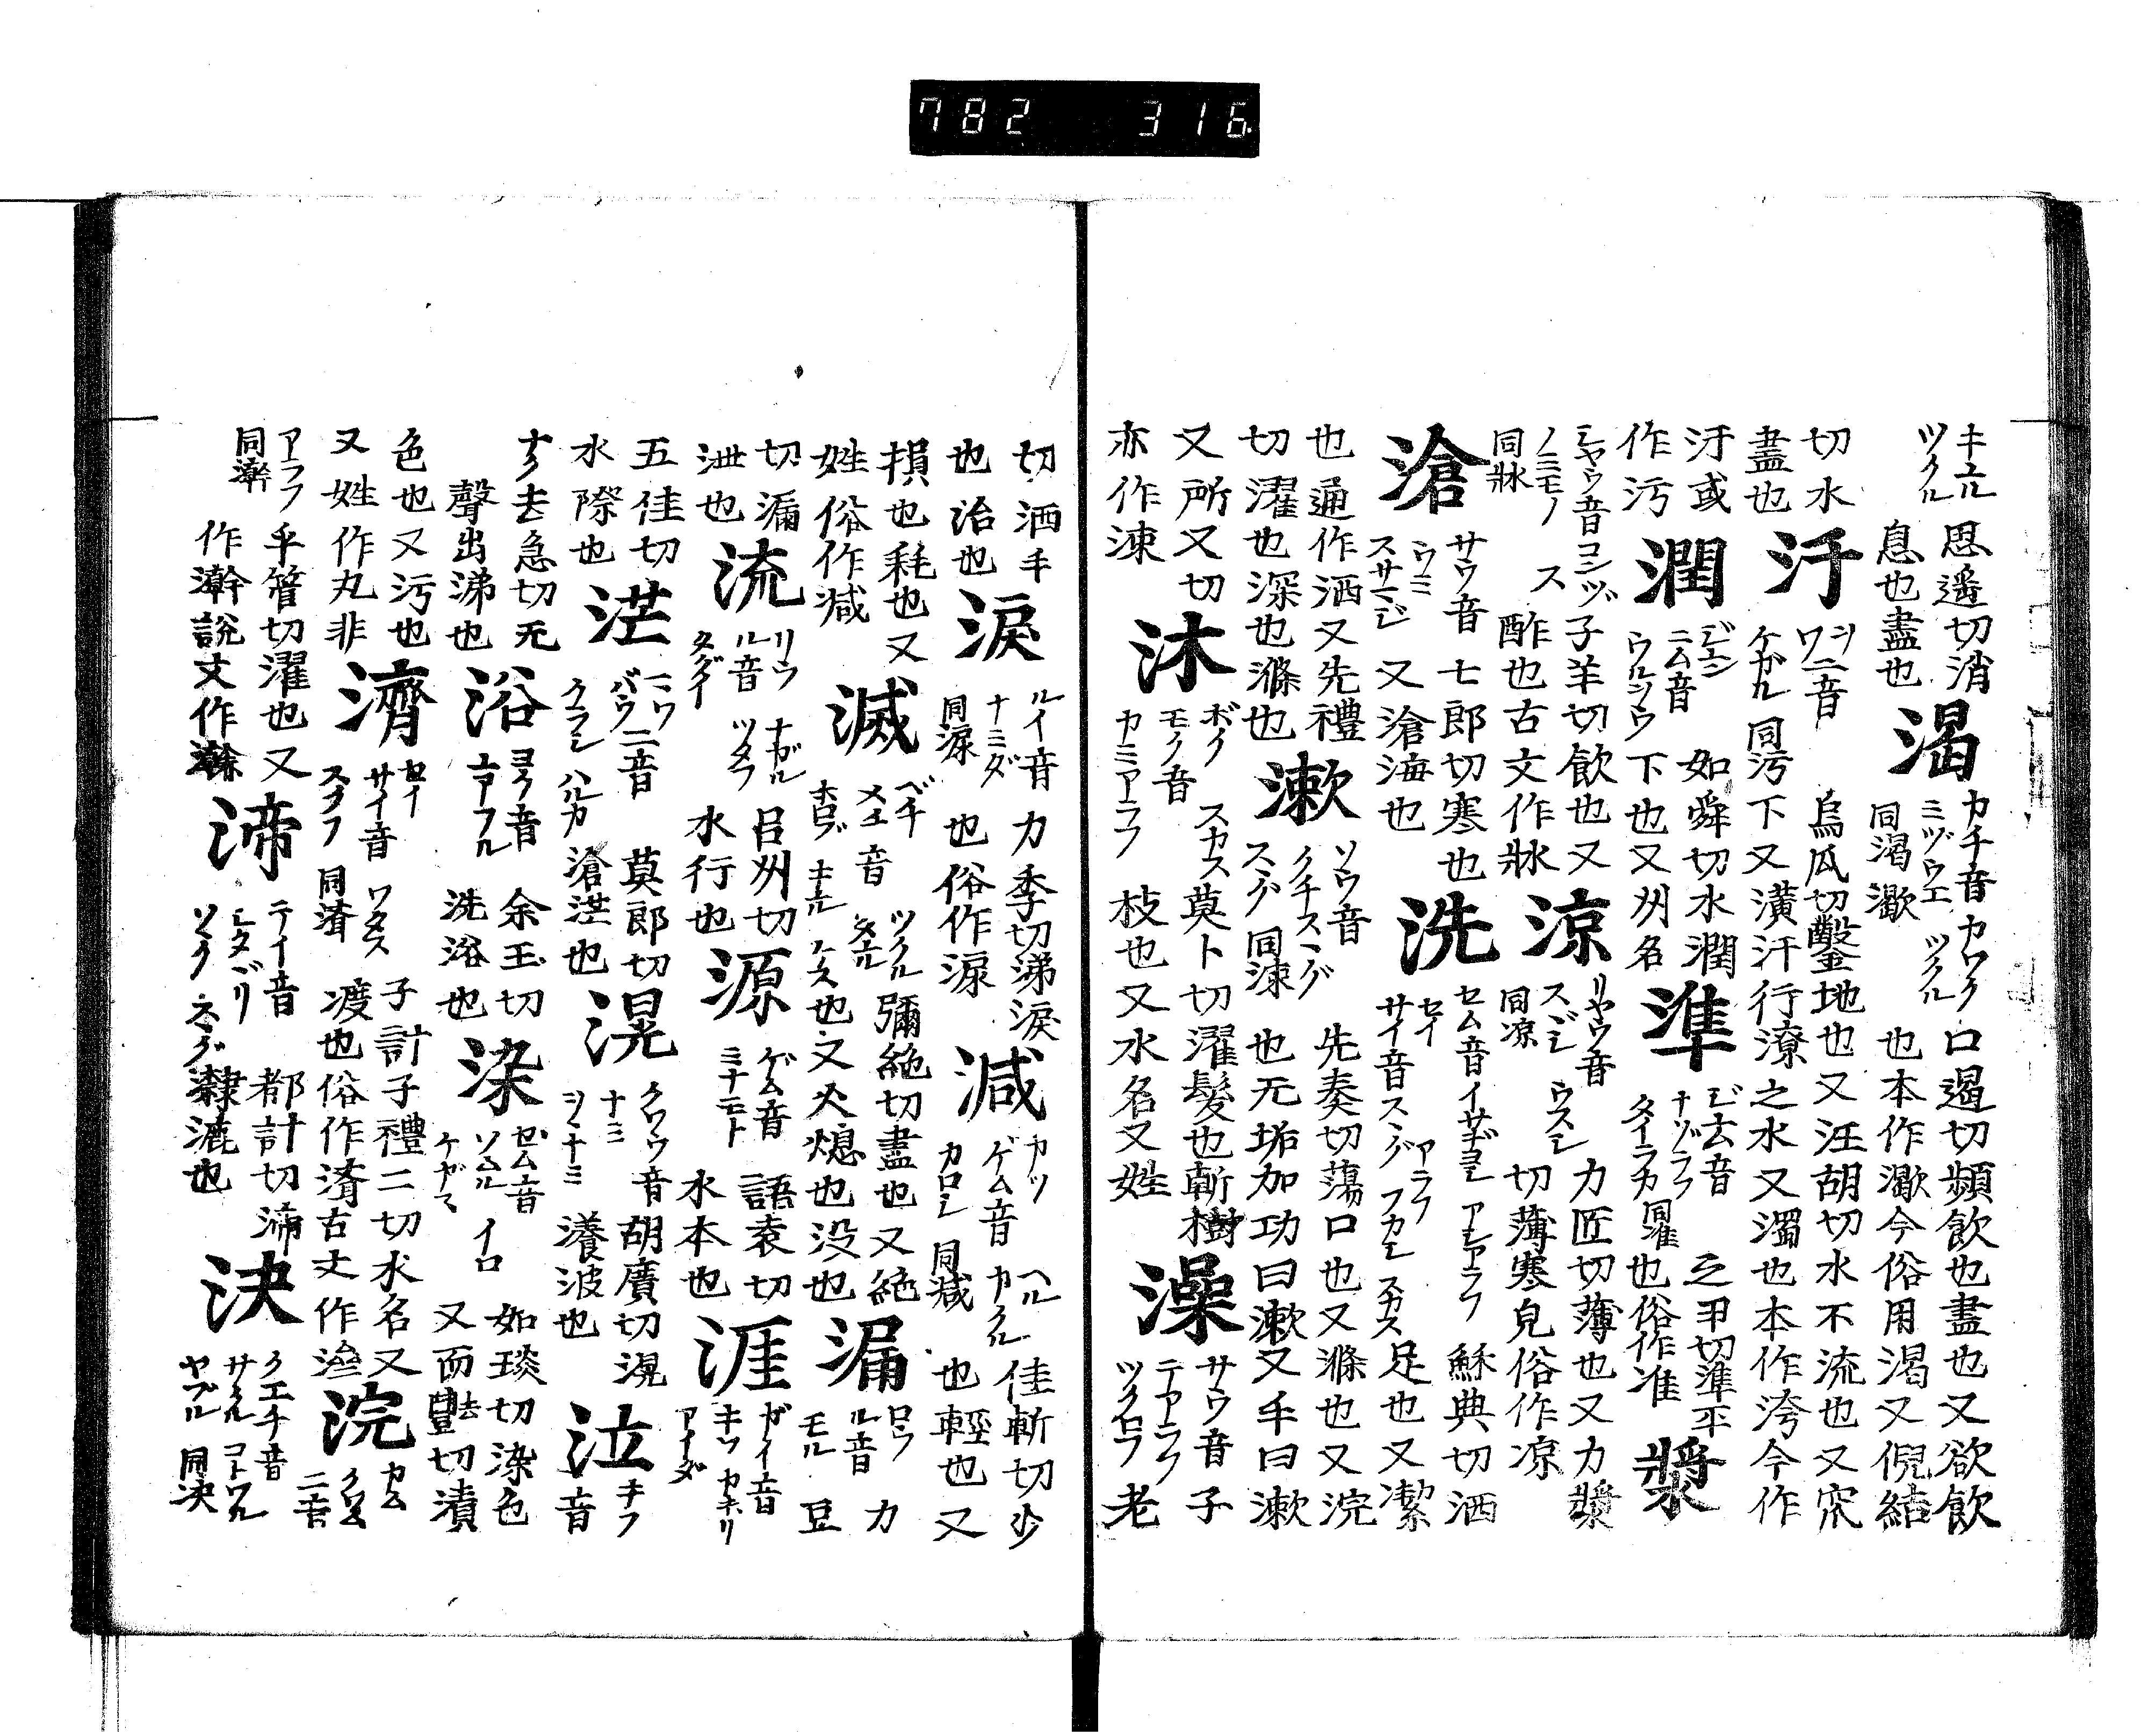 782 316
キユル 思遥切消
ツクル 息也盡也 渇 カチ音カワク ミヅウエ ツクル 同渇漱 口遏切頻飲也盡也又欲飲
也本作漱今俗用渇又倪結
切水
盡也 汙 ワ二音 ケガル 同污 烏瓜切鑿地也又汪胡切水不流也又
下又潢汙行潦之水又濁也本作洿今作
汙或
作污 潤 ニム音 ウルシウ 如舜切水潤
下也又州名 準 去音 ナゾラフ タイラカ 之尹切準平
也俗作准 漿
シヤウ音コンツ 子羊切飲也又
ノミモノ ス 同牀 酢也古文作牀 涼 リヤウ音 スヾシ ウスシ 同凉 力匠切薄也又力漿
切薄寒皃俗作凉
滄 サウ音 ウミ スサマジ 七郎切寒也
又滄海也 洗 セム音 セイ サイ音 スヽグ アラフ フカシ スカス 蘇典切洒
足也又潔
也通作洒又先禮
切濯也深也滌也 漱 ソウ音 クチスヽグ スヽグ 同涑 先奏切蕩口也又滌也又浣
也无垢加功曰漱又手曰漱
又所又切
亦作涑 沐 ボク モク音 カミアラフ スカス 莫卜切濯髮也斬樹
枝也又水名又姓 澡 サウ音 テアラフ 子
老
切洒手
也治也 淚 ルイ音 ナミダ 同淚 力季切涕淚
也俗作淚 減 ゲム音 ヘル カロシ 同减 佳斬切少
也輕也又
損也耗也又
姓俗作减 滅 ベチ メチ音 ツクル ホロブ キエル ケス 彌絶切盡也又絶
也又火熄也没也 漏 ロウ ル音 モル 力
豆
切漏
泄也 流 リウ ル音 ナガル 呂州切
水行也 源 ゲム音 ミナモト 語袁切
水本也 涯 ガイ音 キシ カキリ
五佳切
水際也 茫 バウ二音 ハルカ 莫郎切
滄茫也 滉 クワウ音 ナミ 胡廣切滉
瀁波也 泣 キフ音
去急切无
聲出涕也 浴 ヨク音 余玉切
洗浴也 染 セム音 ソムル イロ 如琰切染色
又而豔切漬
色也又污也
又姓作丸非 濟 セイ サイ音 ワタス スクフ 同済 子計子禮二切水名又
渡也俗作済古文作 浣 カム 二音
アラフ 同澣 乎管切濯也又
作澣説文作 渧 テイ音 シタヾリ 都計切渧
漉也 決 クエチ音 コトワル ヤブル 同决